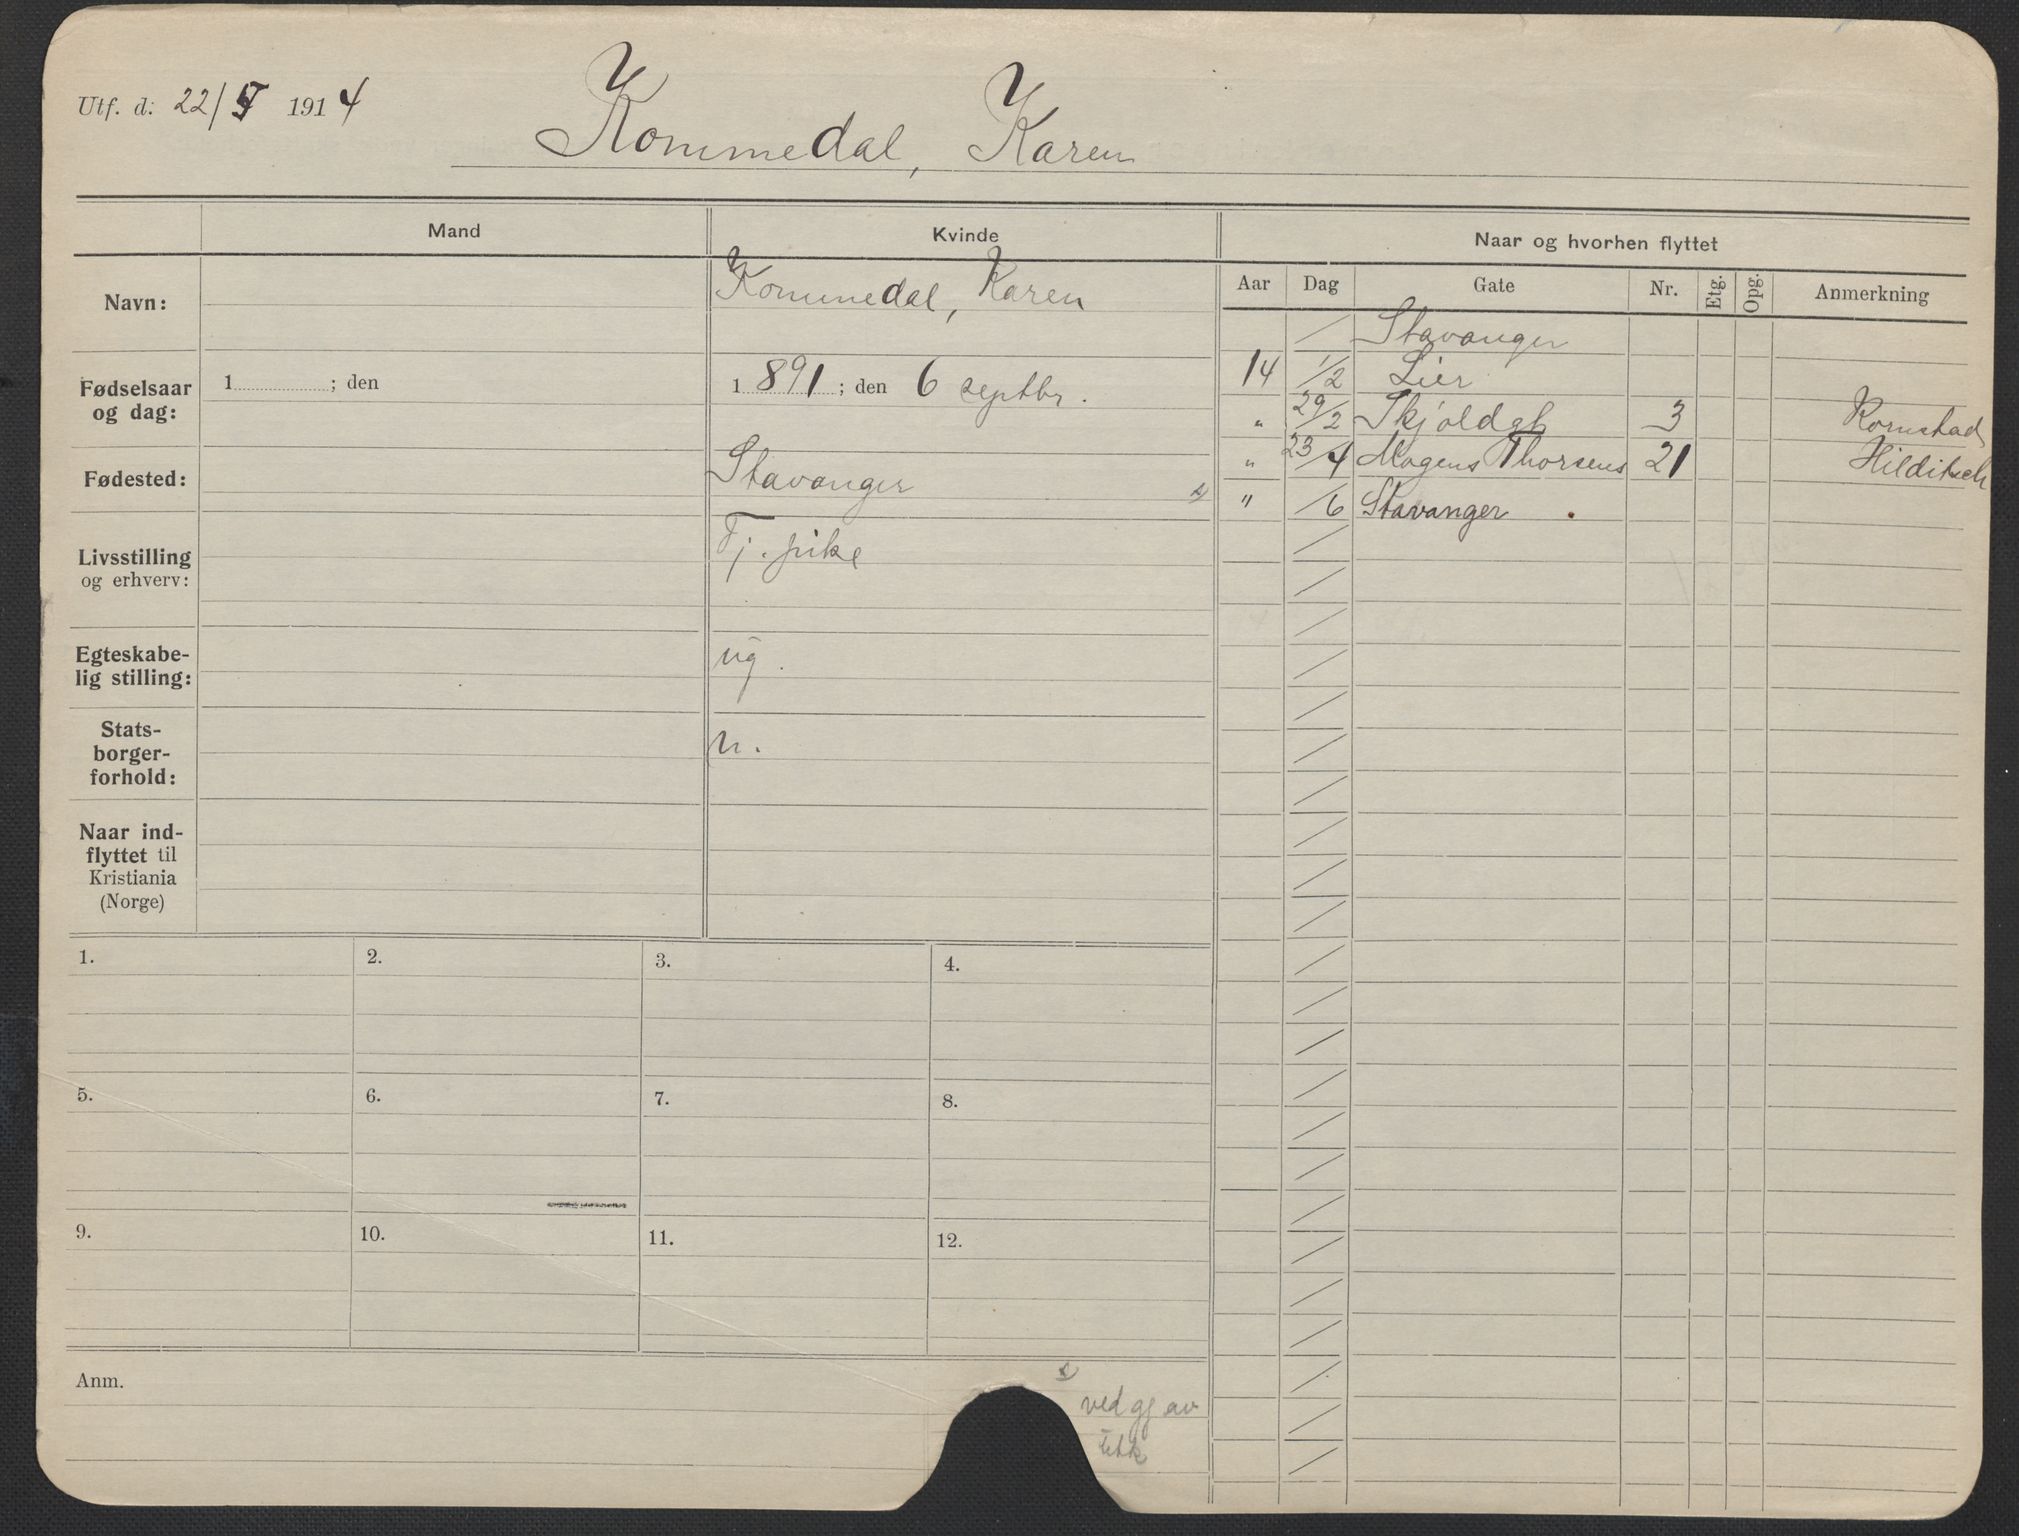 Utf. d: 22/5 1914
Kommedal, Karen
Mand
Kvinde
Naar og hvorhen flyttet
Aar Dag Gate Nr. Etg. Opg. Anmerkning
Navn:
Kommedal, Karen
Fødselsaar
og dag:
1 ; den
1 891 ; den 6 septbr.
Fødested:
Stavanger
Livsstilling
og erhverv:
Tj. pike
Egteskabe-
lig stilling:
ug.
Stats-
borger-
forhold:
n.
Naar ind-
flyttet til
Kristiania
(Norge)
/ Stavanger
14 1/2 Lier
" 29/2 Skjoldgt 3 Kornstad
" 23/4 Mogens Thorsens 21 Hilditsch
" /6 Stavanger
1. 2. 3. 4.
5. 6. 7. 8.
9. 10. 11. 12.
Anm.
ved gj av